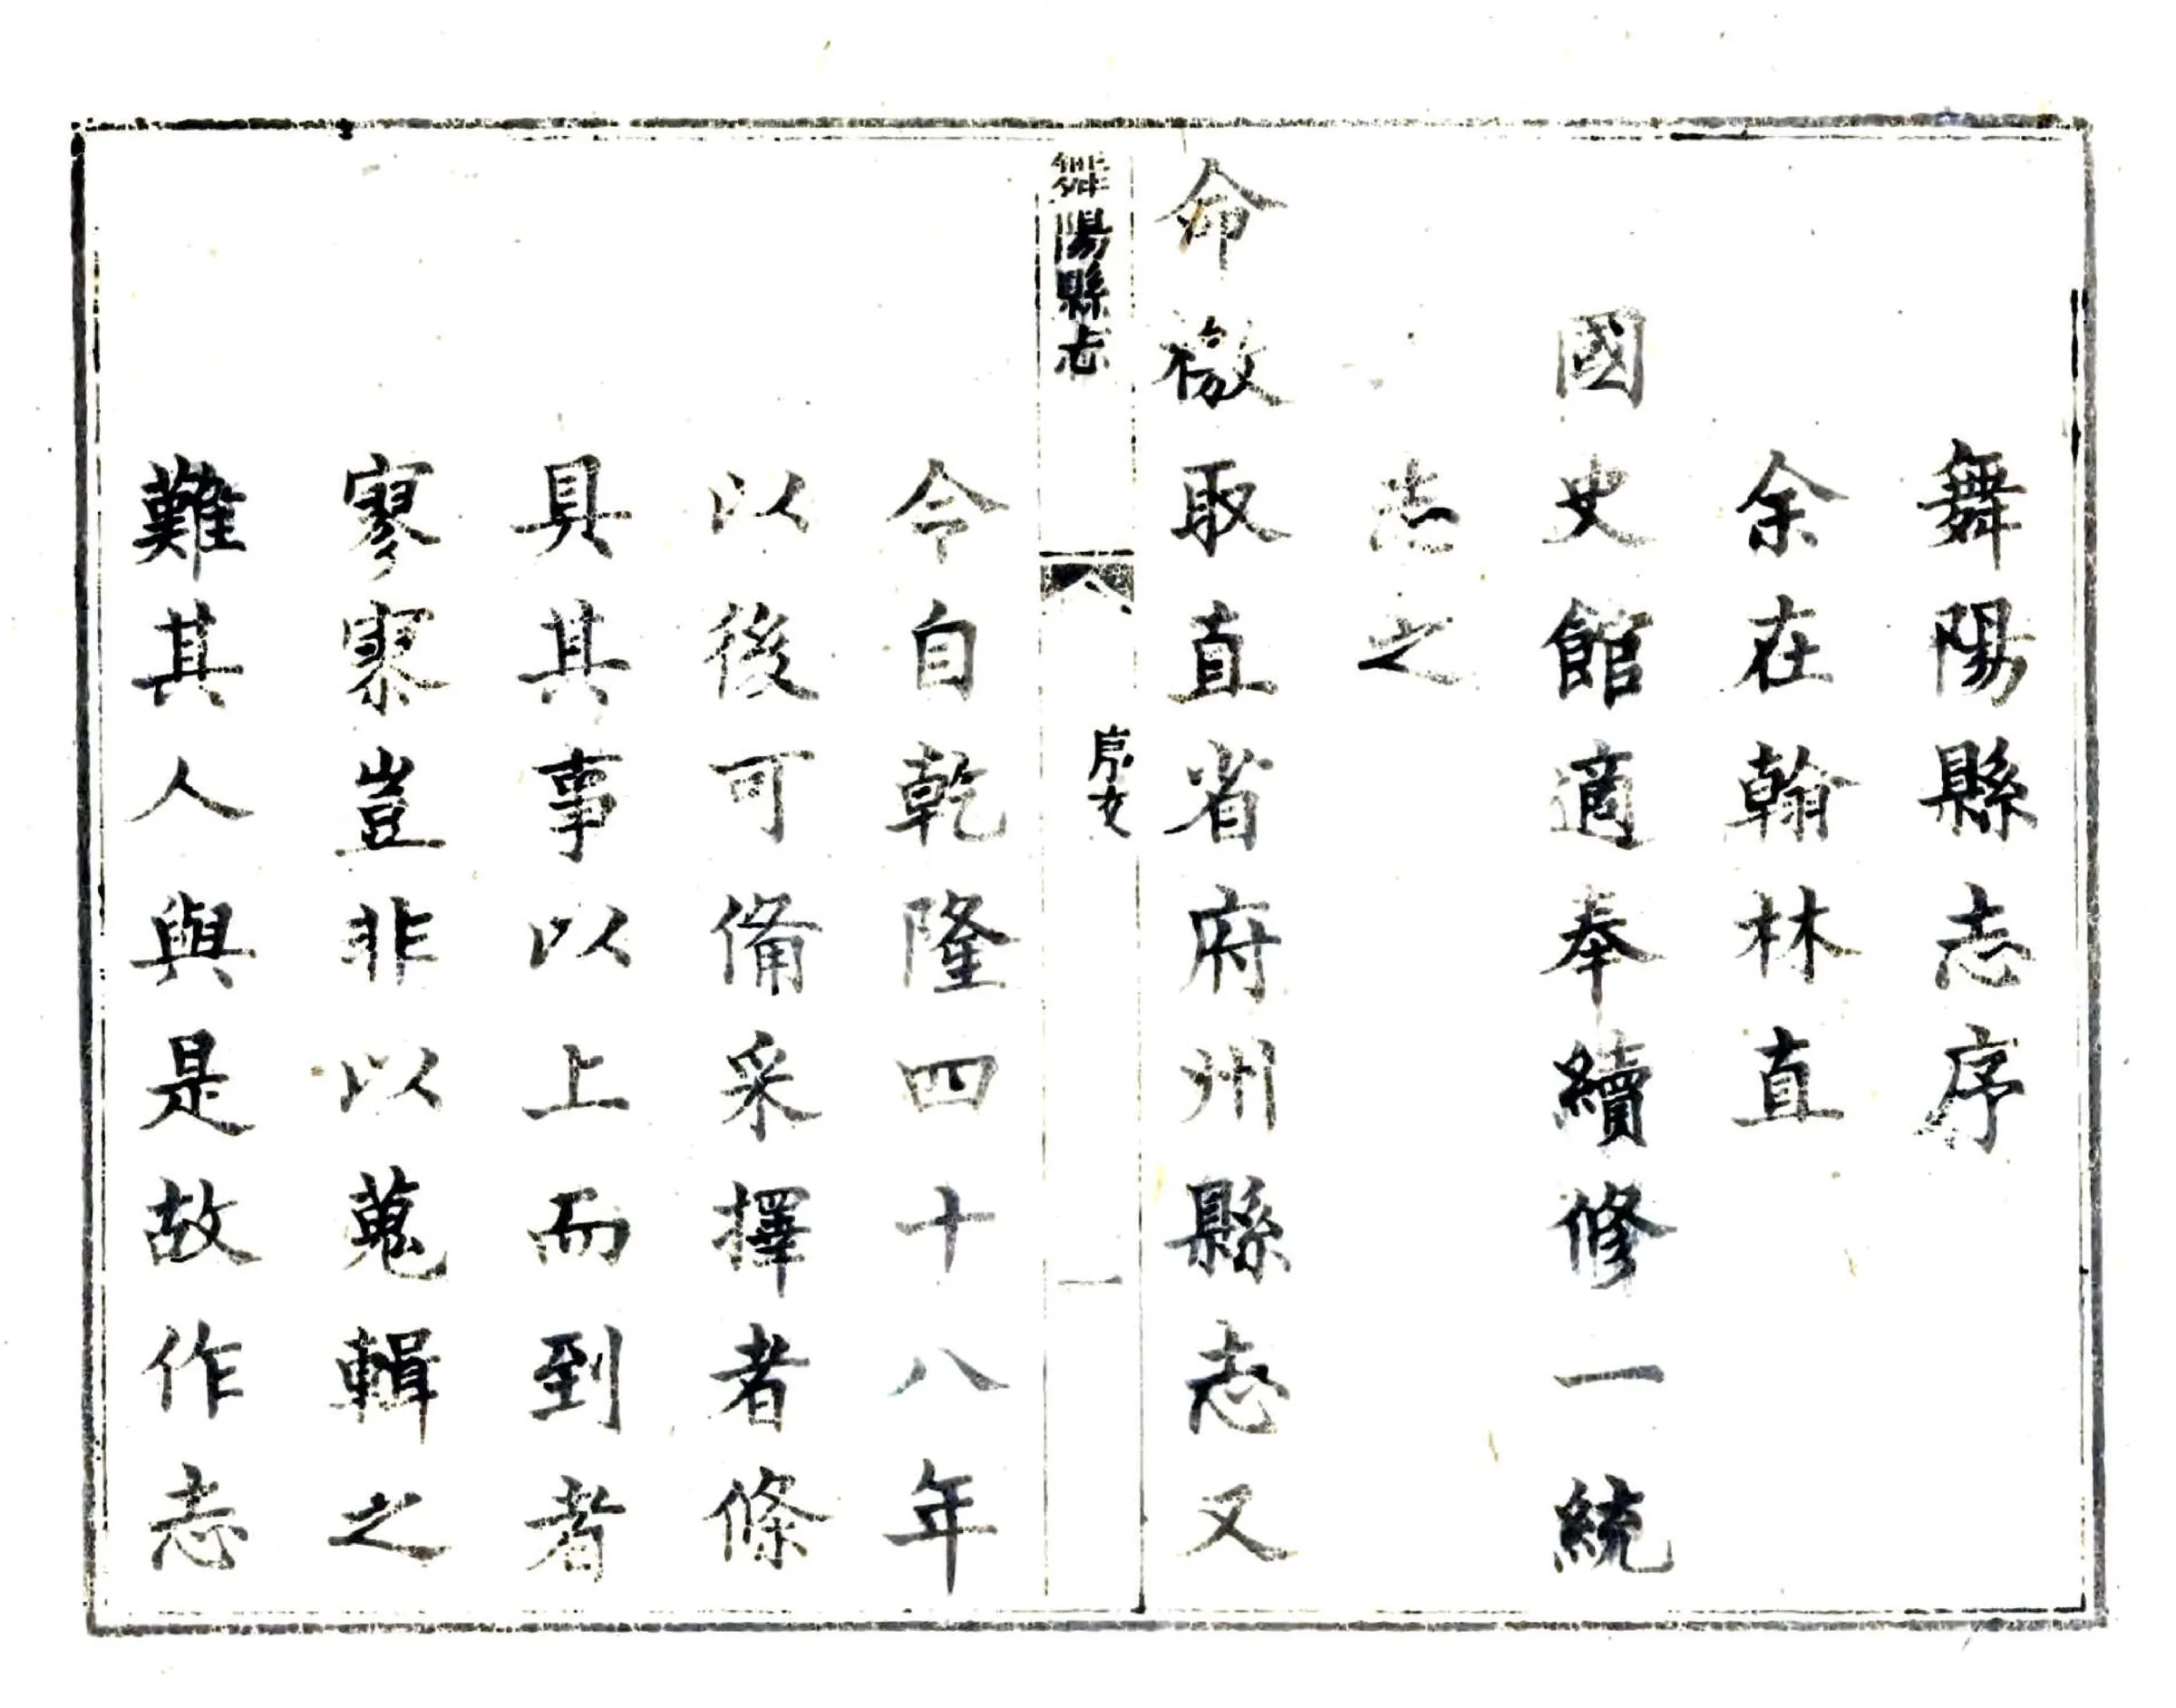 舞陽縣志序
余在翰林直
國史館適奉續修一統
志之
命檄取直省府州縣志又
舞陽縣志
序文
一
令自乾隆四十八年
以後可備采擇者條
具其事以上而到者
寥寥豈非以蒐輯之
難其人與是故作志